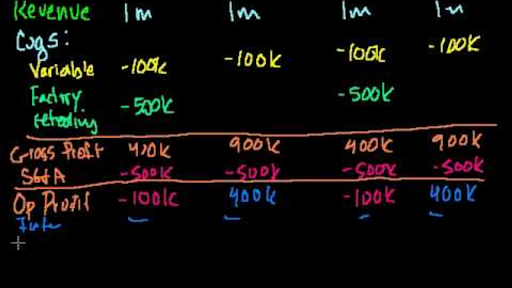 Revenue 1m 1m 1m 1m
Cogs:
Variable -100k -100k -100k -100k
Factory -500k -500k
retooling
Gross Profit 400k 900k 400k 900k
SG&A -500k -500k -500k -500k
Op Profit -100k 400k -100k 400k